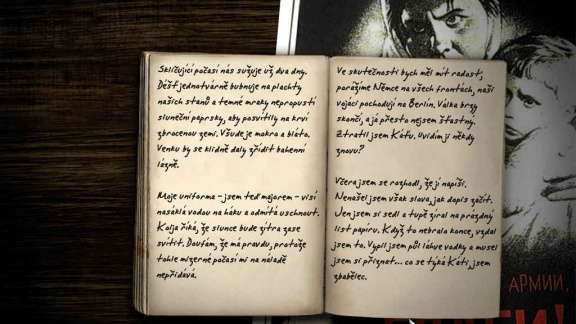 Skličující počasí nás sužuje už dva dny.
Déšť jednotvárně bubnuje na plachty
našich stanů a temné mraky nepropustí
sluneční paprsky, aby posvítily na krví
zbrocenou zemi. Všude je mokro a bláto.
Venku by se klidně daly zřídit bahenní
lázně.
Moje uniforma – jsem teď majorem – visí
nasáklá vodou na háku a odmítá uschnout.
Kolja říká, že slunce bude zítra zase
svítit. Doufám, že má pravdu, protože
tohle mizerné počasí mi na náladě
nepřidává.
Ve skutečnosti bych měl mít radost,
porážíme Němce na všech frontách, naši
vojáci pochodují na Berlín. Válka brzy
skončí, a já přesto nejsem šťastný.
Ztratil jsem Káťu. Uvidím ji někdy
znovu?
Včera jsem se rozhodl, že jí napíši.
Nenašel jsem však slova, jak dopis začít.
Jen jsem si sedl a tupě zíral na prázdný
list papíru. Když to nebralo konce, vzdal
jsem to. Vypil jsem půl láhve vodky a musel
jsem si přiznat... co se týká Káti, jsem
zbabělec.
АРМИИ,